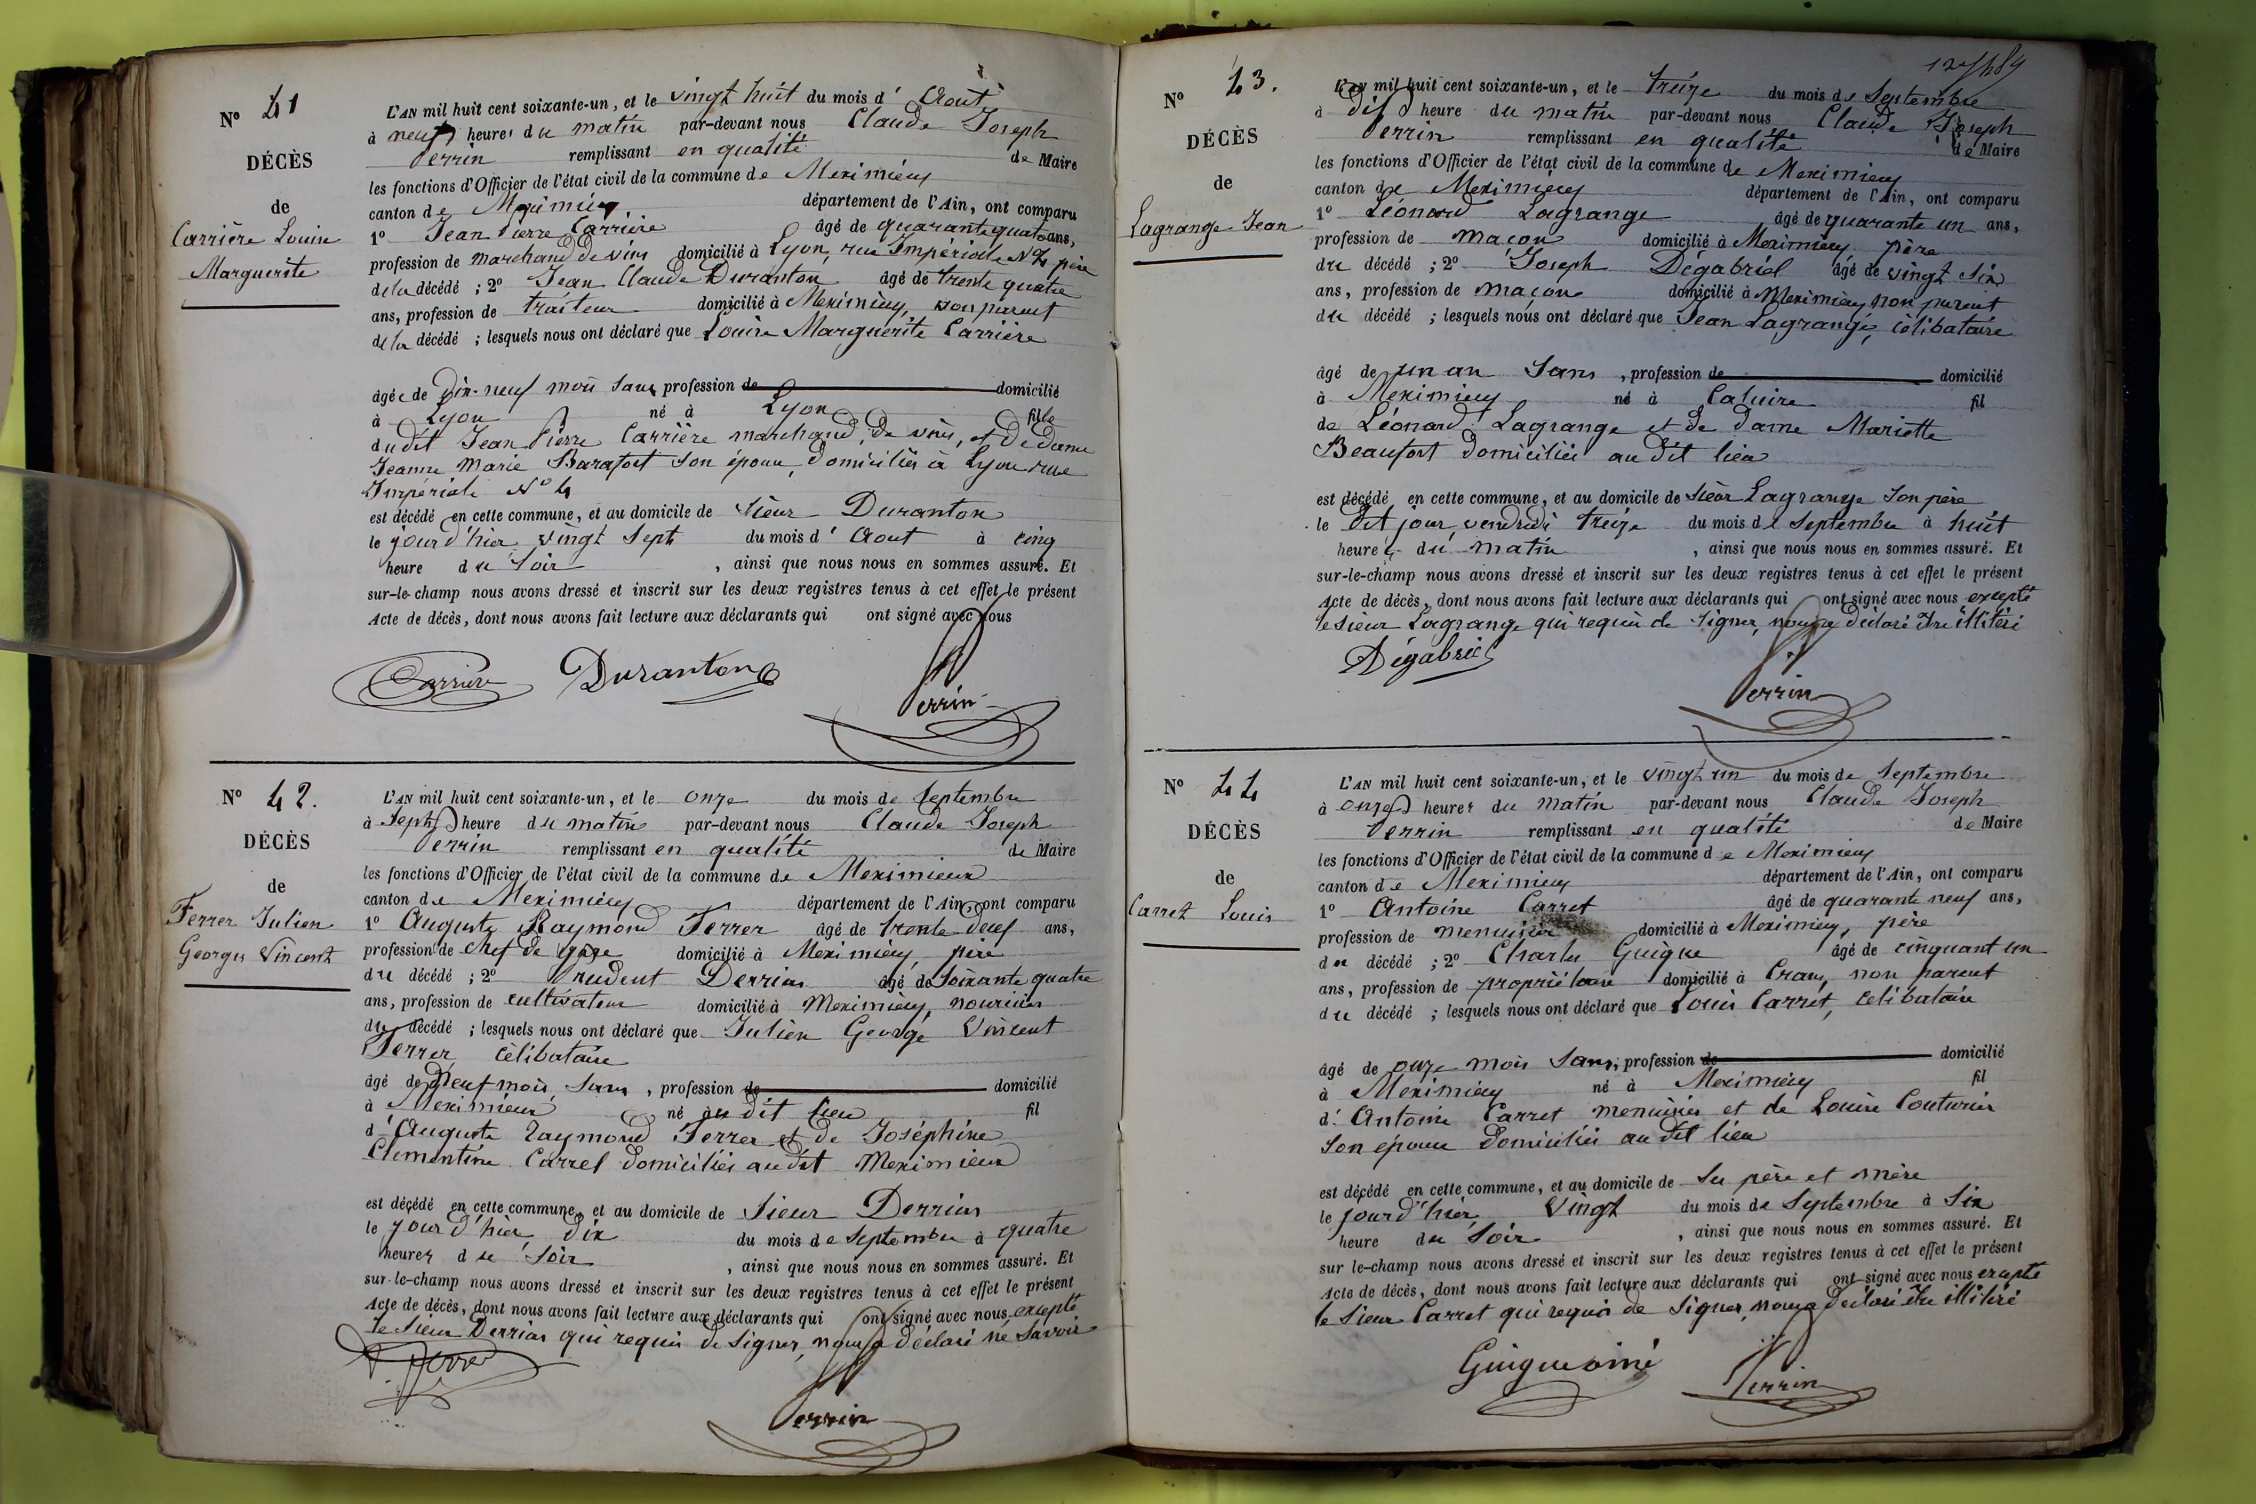 Nº 41
DÉCÈS
de
Carrière Louise
Marguerite
L'AN mil huit cent soixante-un, et le vingt huit du mois d'Aout
à neuf heures du matin par-devant nous Claude Joseph
Perrin remplissant en qualité de Maire
les fonctions d'Officier de l'état civil de la commune de Meximieux
canton de Meximieux département de l'Ain, ont comparu
1º Jean Pierre Carrière âgé de quarante quatre ans,
profession de marchand de vins domicilié à Lyon, rue Impériale Nº 4 père
de la décédé ; 2º Jean Claude Duranton âgé de trente quatre
ans, profession de traiteur domicilié à Meximieux, non parent
de la décédé ; lesquels nous ont déclaré que Louise Marguerite Carrière
âgée de Dix-neuf mois sans profession de domicilié
à Lyon né à Lyon fille
du dit Jean Pierre Carrière marchand de vins, et de Dame
Jeanne Marie Barafort son épouse, domiciliés à Lyon rue
Impériale Nº 4
est décédé en cette commune, et au domicile de sieur Duranton
le jour d'hier vingt sept du mois d'Aout à cinq
heure du soir, ainsi que nous nous en sommes assuré. Et
sur-le-champ nous avons dressé et inscrit sur les deux registres tenus à cet effet le présent
Acte de décès, dont nous avons fait lecture aux déclarants qui ont signé avec nous
Carrière Duranton Perrin
Nº 42.
DÉCÈS
de
Ferrer Julien
Georges Vincent
L'AN mil huit cent soixante-un, et le onze du mois de Septembre
à Sept heure du matin par-devant nous Claude Joseph
Perrin remplissant en qualité de Maire
les fonctions d'Officier de l'état civil de la commune de Meximieux
canton de Meximieux département de l'Ain, ont comparu
1º Auguste Raymond Ferrer âgé de trente deux ans,
profession de chef de gare domicilié à Meximieux, père
du décédé ; 2º Prudent Derrias âgé de Soixante quatre
ans, profession de cultivateur domicilié à Meximieux, nourricier
du décédé ; lesquels nous ont déclaré que Julien George Vincent
Ferrer, célibataire
âgé de neuf mois, sans, profession de domicilié
à Meximieux né au dit lieu fil
d'Auguste Raymond Ferrer et de Joséphine
Clementine Carrel domiciliés au dit Meximieux
est décédé en cette commune, et au domicile de Sieur Derrias
le jour d'hier dix du mois de Septembre à quatre
heures du soir, ainsi que nous nous en sommes assuré. Et
sur-le-champ nous avons dressé et inscrit sur les deux registres tenus à cet effet le présent
Acte de décès, dont nous avons fait lecture aux déclarants qui ont signé avec nous excepté
le Sieur Derrias qui requis de signer, nous a déclaré ne savoir
Ferrer
Perrin
Nº 43.
DÉCÈS
de
Lagrange Jean
L'AN mil huit cent soixante-un, et le treize du mois de Septembre
à dix heure du matin par-devant nous Claude Joseph
Perrin remplissant en qualité de Maire
les fonctions d'Officier de l'état civil de la commune de Meximieux
canton de Meximieux département de l'Ain, ont comparu
1º Léonard Lagrange âgé de quarante un ans,
profession de maçon domicilié à Meximieux père
du décédé ; 2º Joseph Dégabriel âgé de vingt six
ans, profession de maçon domicilié à Meximieux non parent
du décédé ; lesquels nous ont déclaré que Jean Lagrange, célibataire
âgé de un an Sans, profession de domicilié
à Meximieux né à Caluire fil
de Léonard Lagrange et de Dame Mariette
Beaufort domiciliés au dit lieu
est décédé en cette commune, et au domicile de Sieur Lagrange son père
le dit jour, vendredi treize du mois de Septembre à huit
heure du matin, ainsi que nous nous en sommes assuré. Et
sur-le-champ nous avons dressé et inscrit sur les deux registres tenus à cet effet le présent
Acte de décès, dont nous avons fait lecture aux déclarants qui ont signé avec nous excepté
le sieur Lagrange qui requis de signer, nous a déclaré être illitéré
Dégabriel
Perrin
Nº 44
DÉCÈS
de
Carret Louis
L'AN mil huit cent soixante-un, et le vingt un du mois de Septembre
à onze heures du matin par-devant nous Claude Joseph
Perrin remplissant en qualité de Maire
les fonctions d'Officier de l'état civil de la commune de Meximieux
canton de Meximieux département de l'Ain, ont comparu
1º Antoine Carret âgé de quarante neuf ans,
profession de menuisier domicilié à Meximieux, père
du décédé ; 2º Charles Guigue âgé de cinquant un
ans, profession de propriétaire domicilié à Crans, non parent
du décédé ; lesquels nous ont déclaré que Louis Carret, célibataire
âgé de onze mois Sans, profession de domicilié
à Meximieux né à Meximieux fil
d'Antoine Carret menuisier et de Louise Couturier
son épouse domiciliés au dit lieu
est décédé en cette commune, et au domicile de Ses père et mère
le jour d'hier Vingt du mois de Septembre à Six
heure du Soir, ainsi que nous nous en sommes assuré. Et
sur le-champ nous avons dressé et inscrit sur les deux registres tenus à cet effet le présent
Acte de décès, dont nous avons fait lecture aux déclarants qui ont signé avec nous excepté
le Sieur Carret qui requis de Signer, nous a déclaré être illitéré
Guigue ainé Perrin